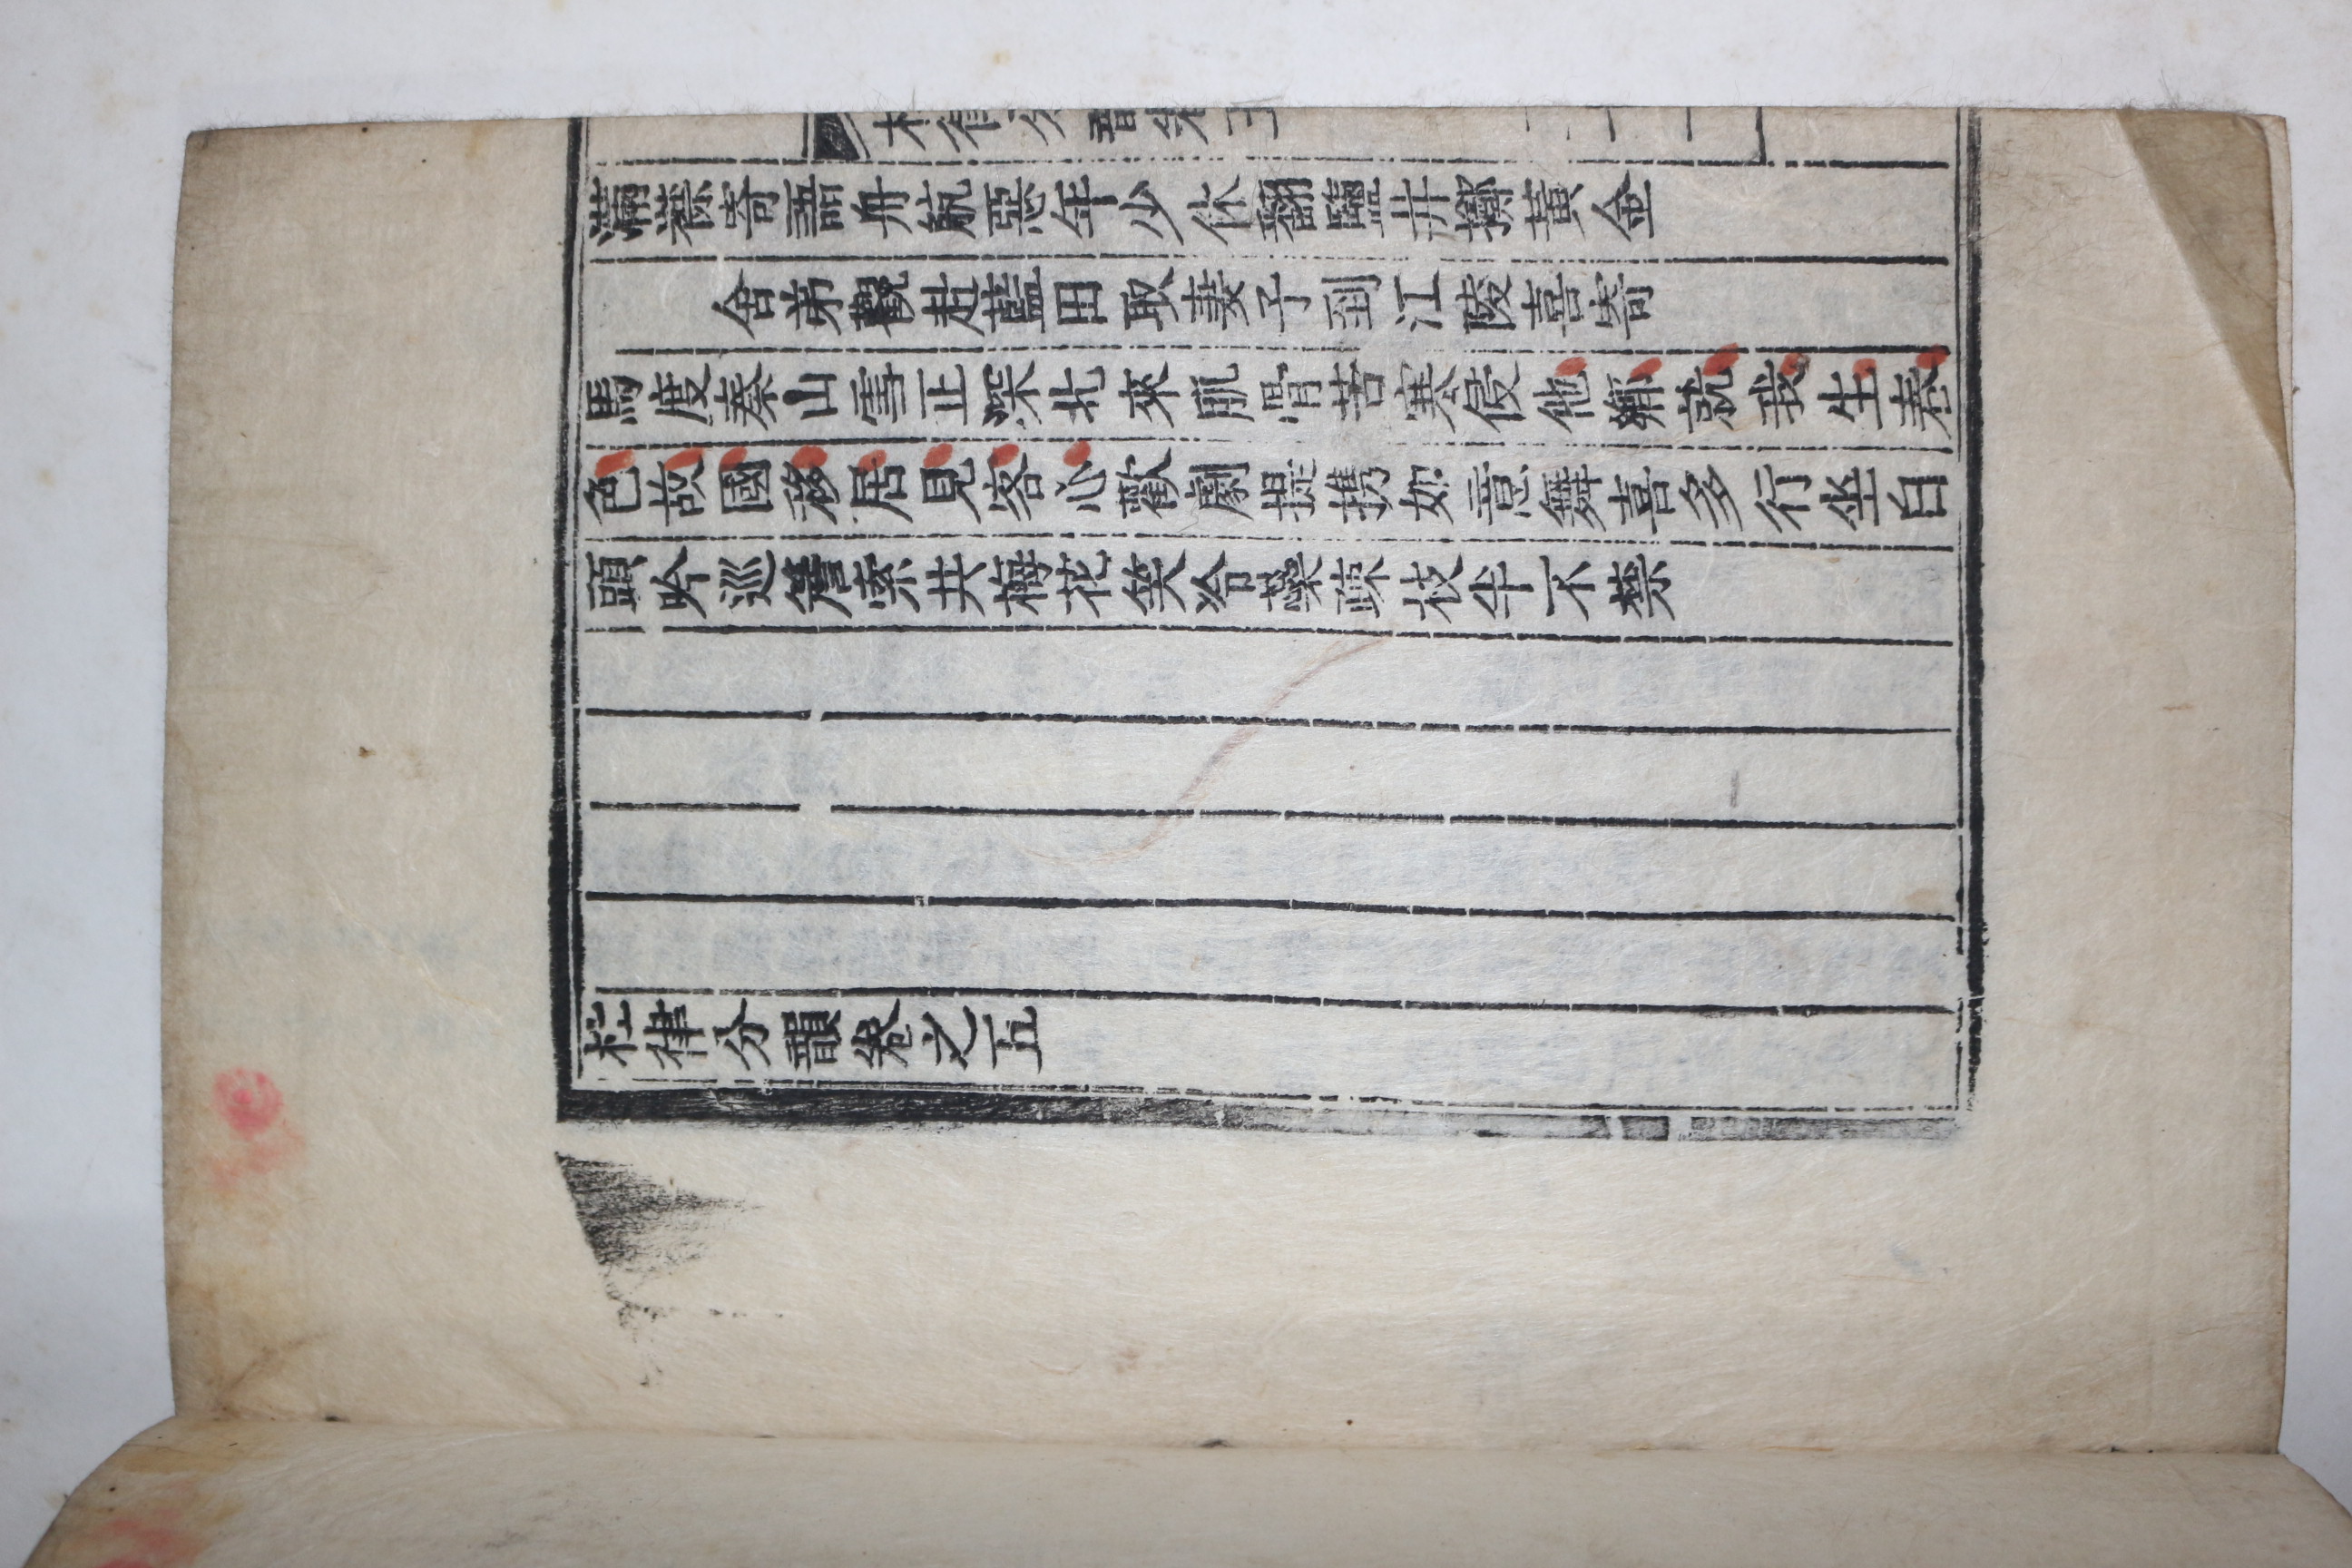 杜律分韻卷五
滿襟寄語舟航惡年少休翻鹽井擲黃金
舍弟觀赴藍田取妻子到江陵喜寄
馬度秦山雪正深北來肌骨苦寒侵他鄉就我生春
色故國移居見客心歡劇提携如意舞喜多行坐白
頭吟巡簷索共梅花笑冷蘂疎枝半不禁
杜律分韻卷之五